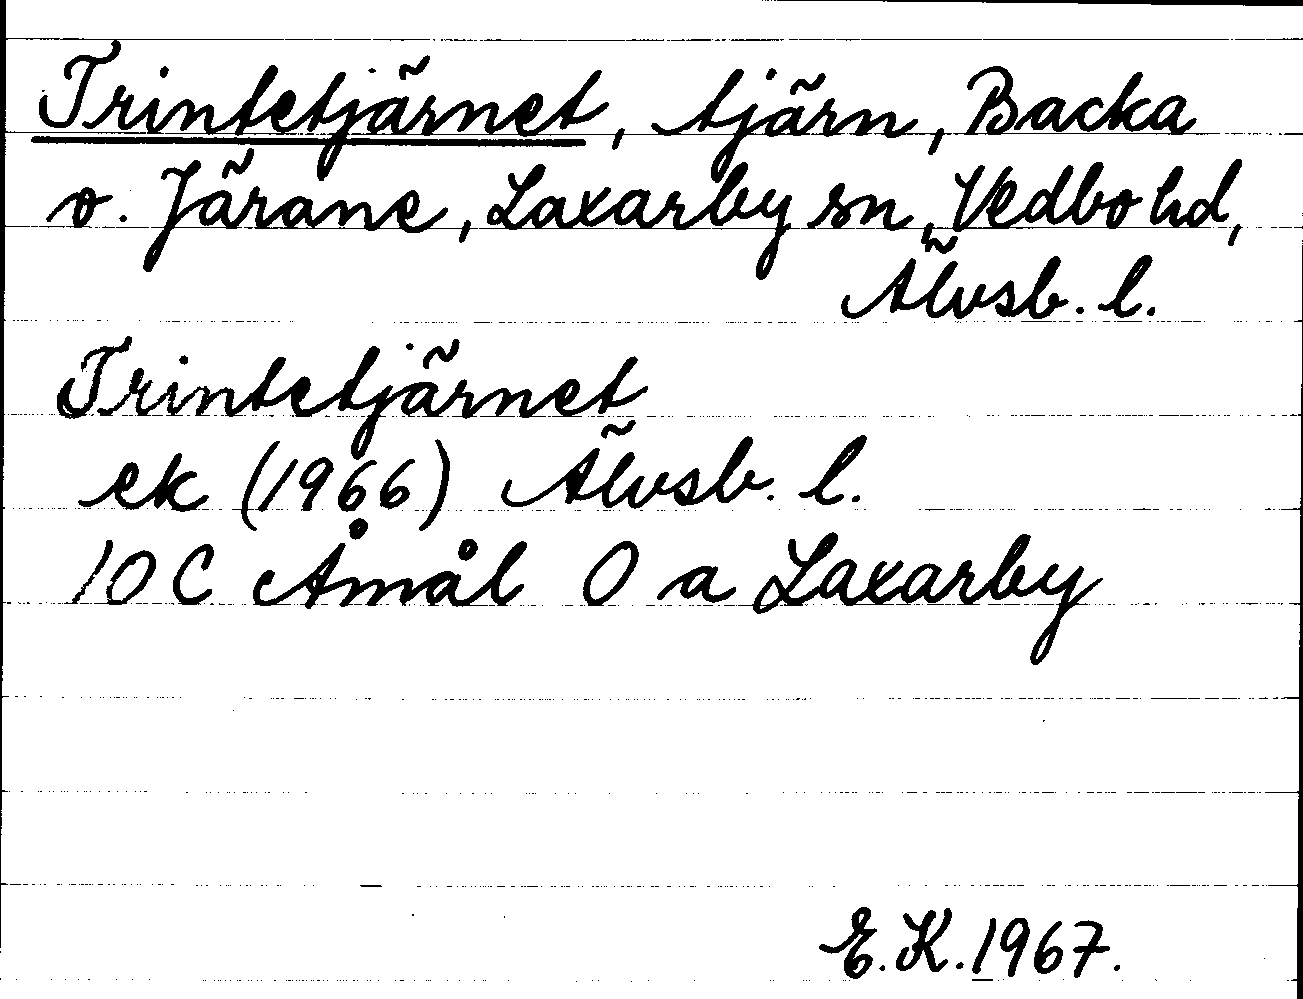 Trintetjärnet, tjärn, Backa
o. Järane, Laxarby sn, Vedbo hd,
Älvsb. l.
Trintetjärnet
ek (1966) Älvsb. l.
10 C Åmål O a Laxarby
E.K. 1967.